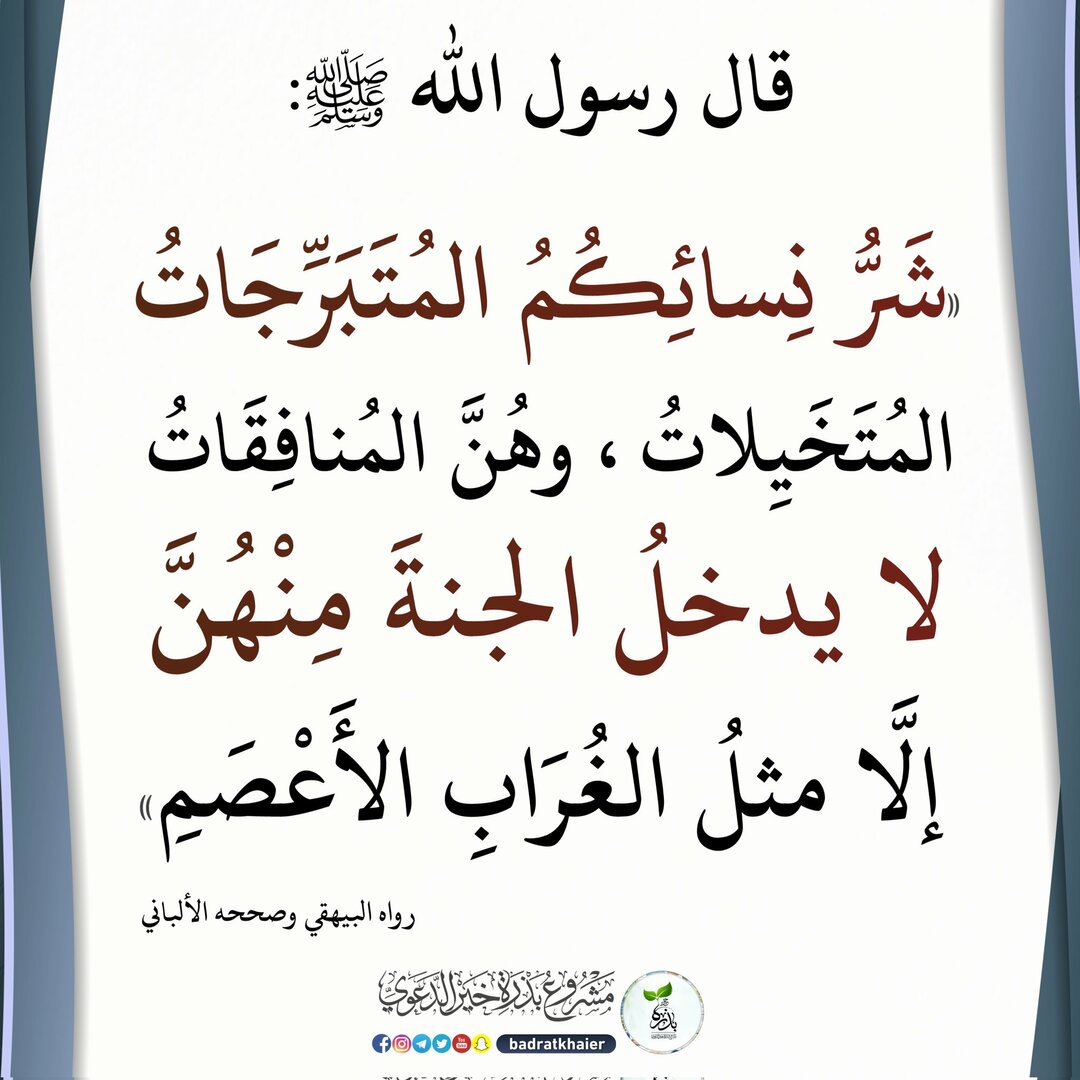 قال رسول الله ﷺ:
«شَرُّ نِسائِكُمُ المُتَبَرِّجَاتُ
المُتَخَيِلاتُ ، وهُنَّ المُنافِقَاتُ
لا يدخلُ الجنةَ مِنْهُنَّ
إلَّا مثلُ الغُرَابِ الأَعْصَمِ»
رواه البيهقي وصححه الألباني
مَشْرُوعُ بَذْرَةِ خَيْرٍ الدَّعَوِيّ
badratkhaier